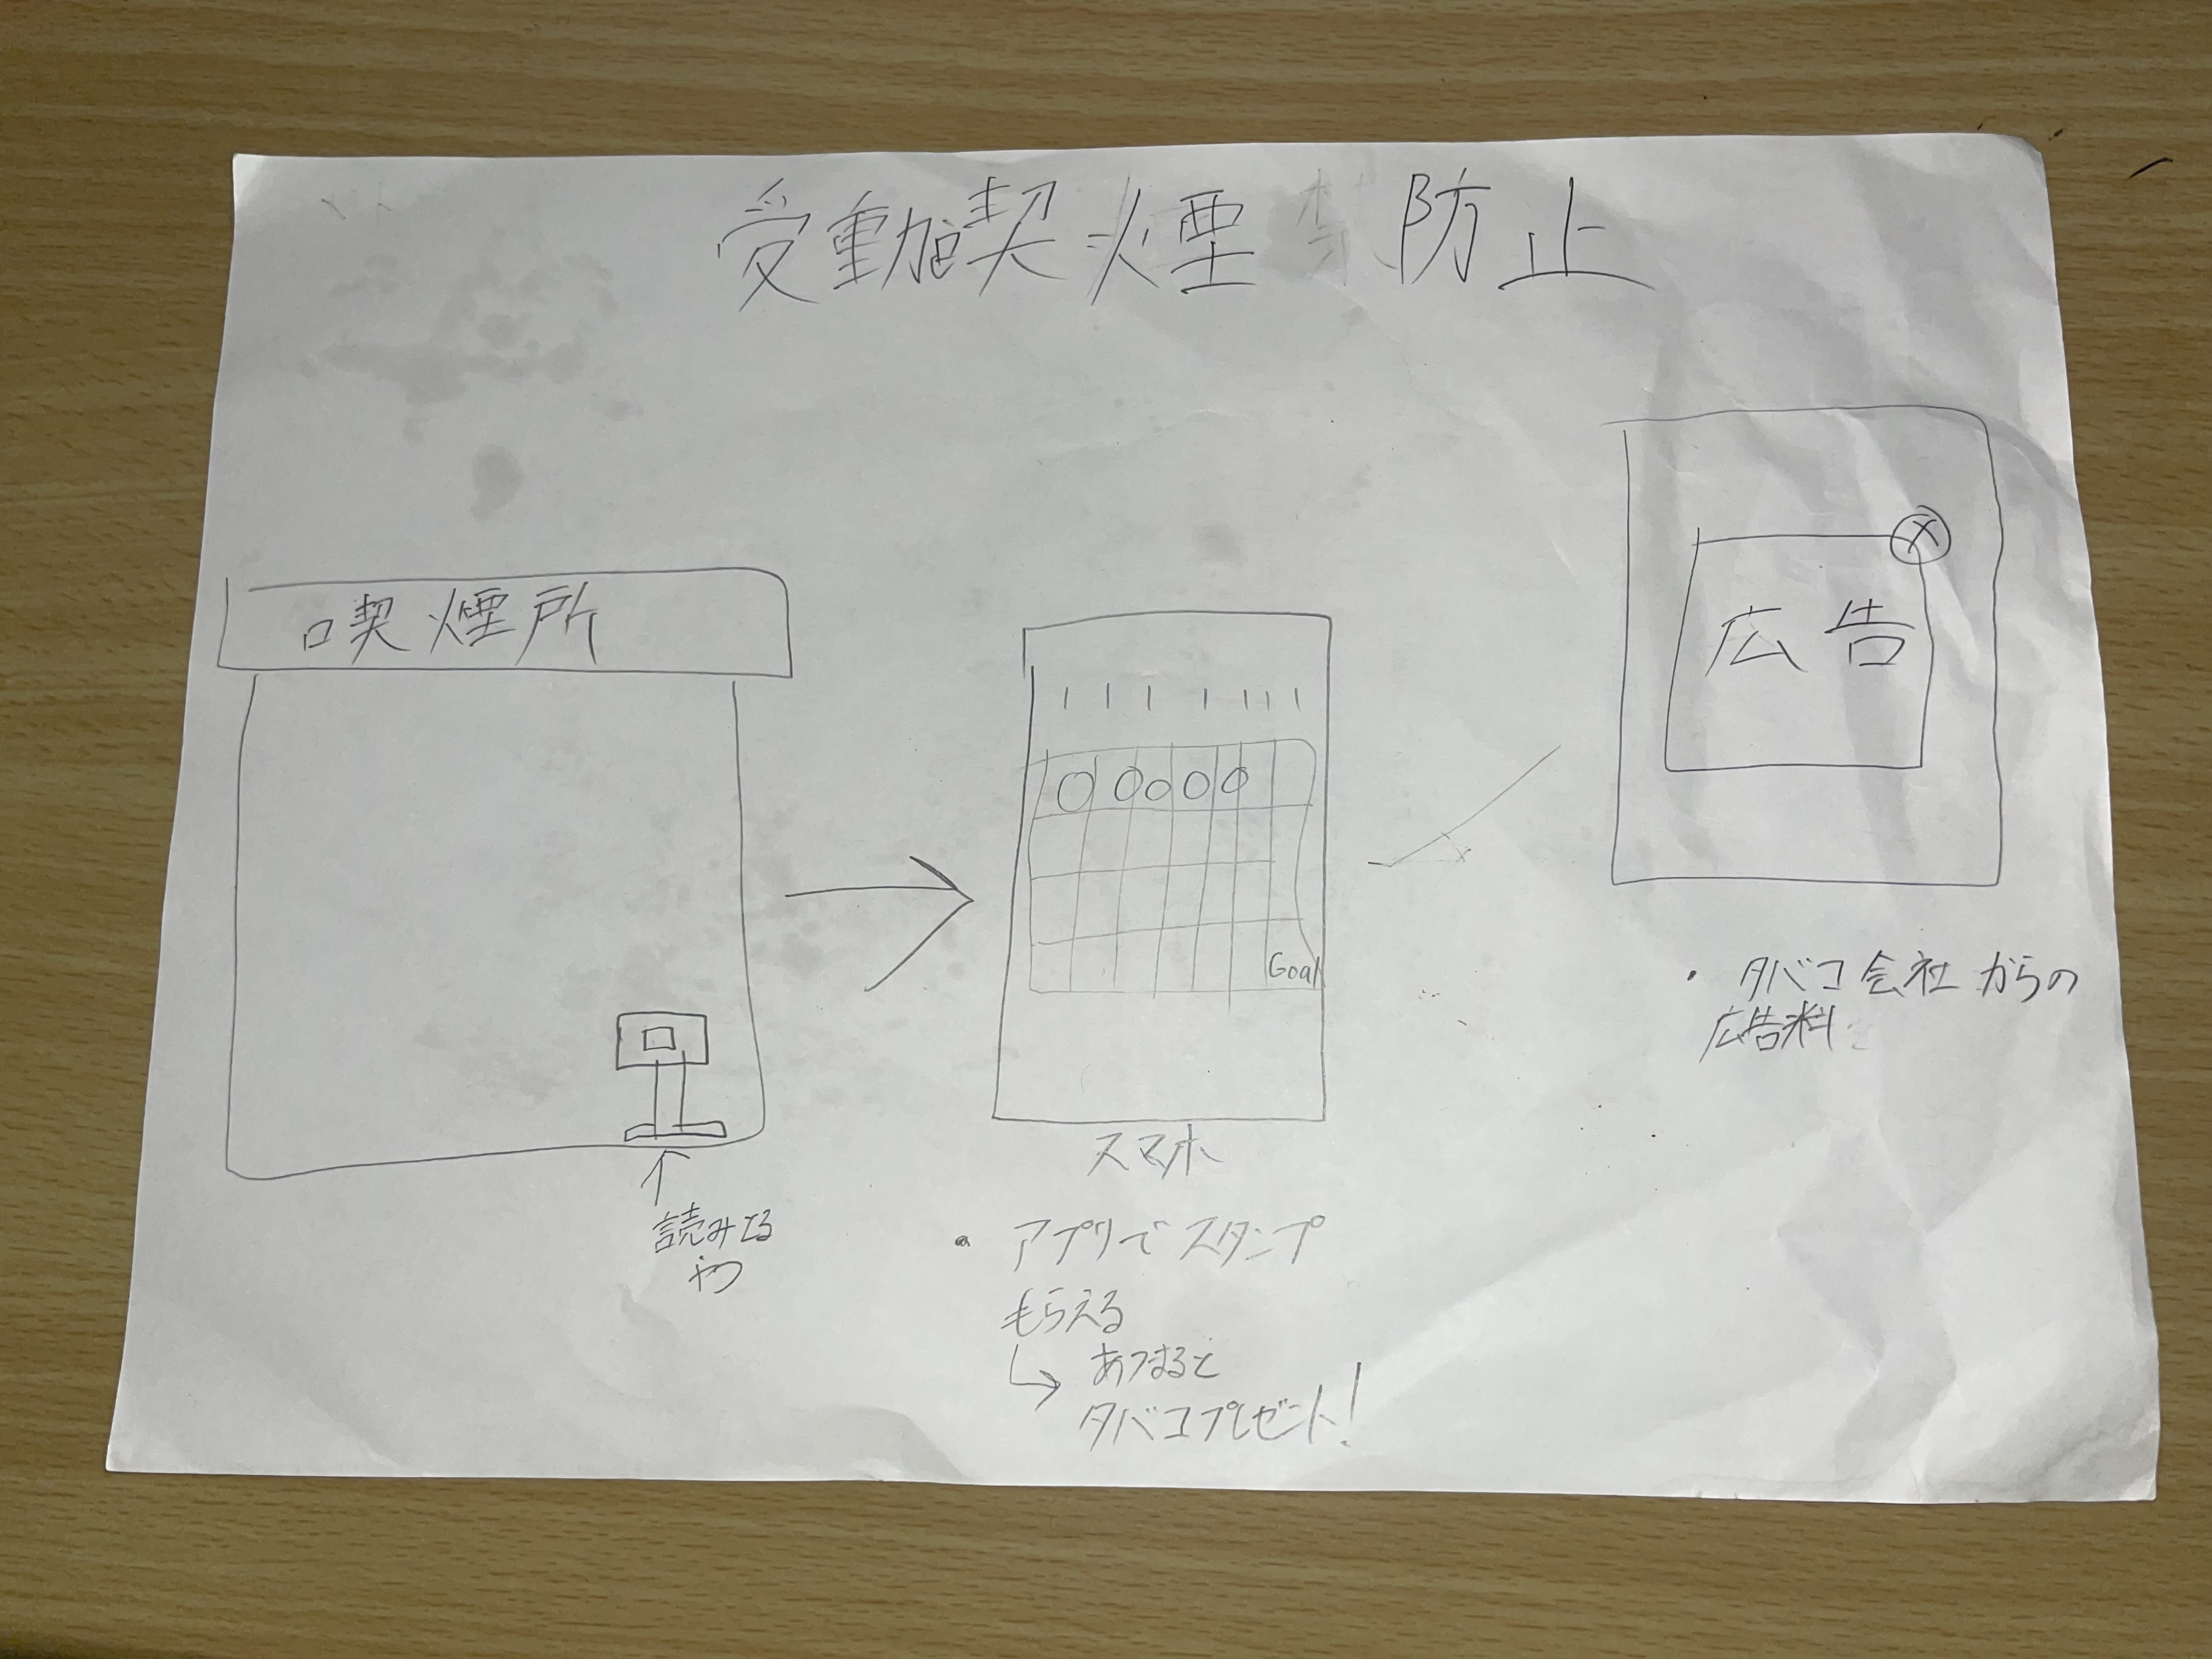 受動喫煙防止
喫煙所
読みとる
やつ
Goal
スマホ
・アプリでスタンプ
もらえる
↳ あつまると
タバコプレゼント!
広告
・タバコ会社からの
広告料